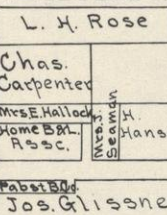 L. H. Rose
Chas.
Carpenter
Mrs. E. Hallock
Home B&L.
Assc.
Mrs. J.
Seaman
H.
Hans
Pabst B. Co.
Jos. Glissne